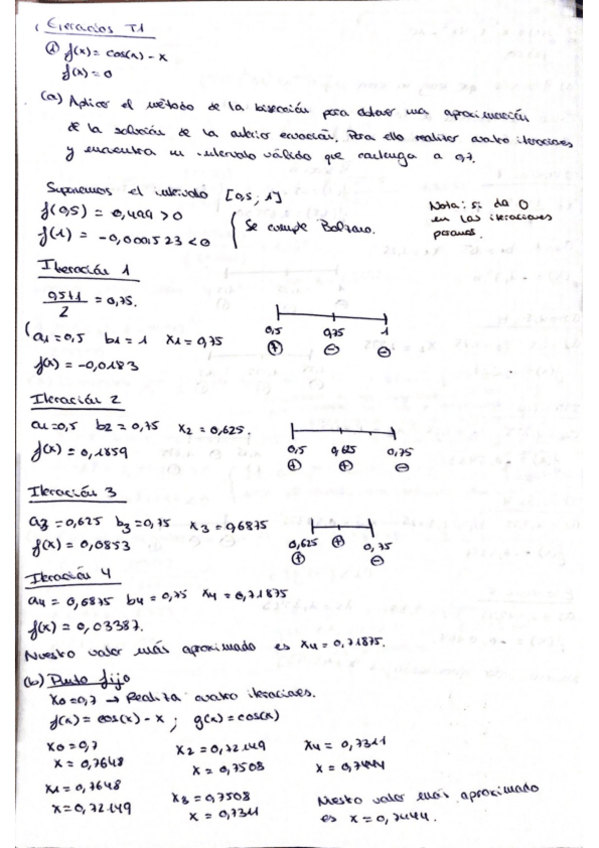 Ejercicios T1
① f(x) = cos(x) - x
f(x) = 0
(a) Aplicar el método de la bisección para obtener una aproximación
de la solución de la anterior ecuación. Para ello realizar cuatro iteraciones
y encuentra un intervalo válido que contenga a 0,7.
Suponemos el intervalo [0,5; 1]
f(0,5) = 0,499 > 0
f(1) = -0,0001523 < 0
Se cumple Bolzano.
Nota: si da 0
en las iteraciones
paramos.
Iteración 1
0,5+1/2 = 0,75.
a1 = 0,5 b1 = 1 x1 = 0,75
f(x) = -0,0183
0,5 0,75 1
+ - -
Iteración 2
a1 = 0,5 b2 = 0,75 x2 = 0,625.
f(x) = 0,1859
0,5 0,625 0,75
+ + -
Iteración 3
a3 = 0,625 b3 = 0,75 x3 = 0,6875
f(x) = 0,0853
0,625 + 0,75
+ -
Iteración 4
a4 = 0,6875 b4 = 0,75 x4 = 0,71875
f(x) = 0,03387.
Nuestro valor más aproximado es x4 = 0,71875.
(b) Punto fijo
x0 = 0,7 → Realiza cuatro iteraciones.
f(x) = cos(x) - x ; g(x) = cos(x)
x0 = 0,7
x = 0,7648
x1 = 0,7648
x = 0,72149
x2 = 0,72149
x = 0,7508
x3 = 0,7508
x = 0,7311
x4 = 0,7311
x = 0,7444
Nuestro valor más aproximado
es x = 0,7444.